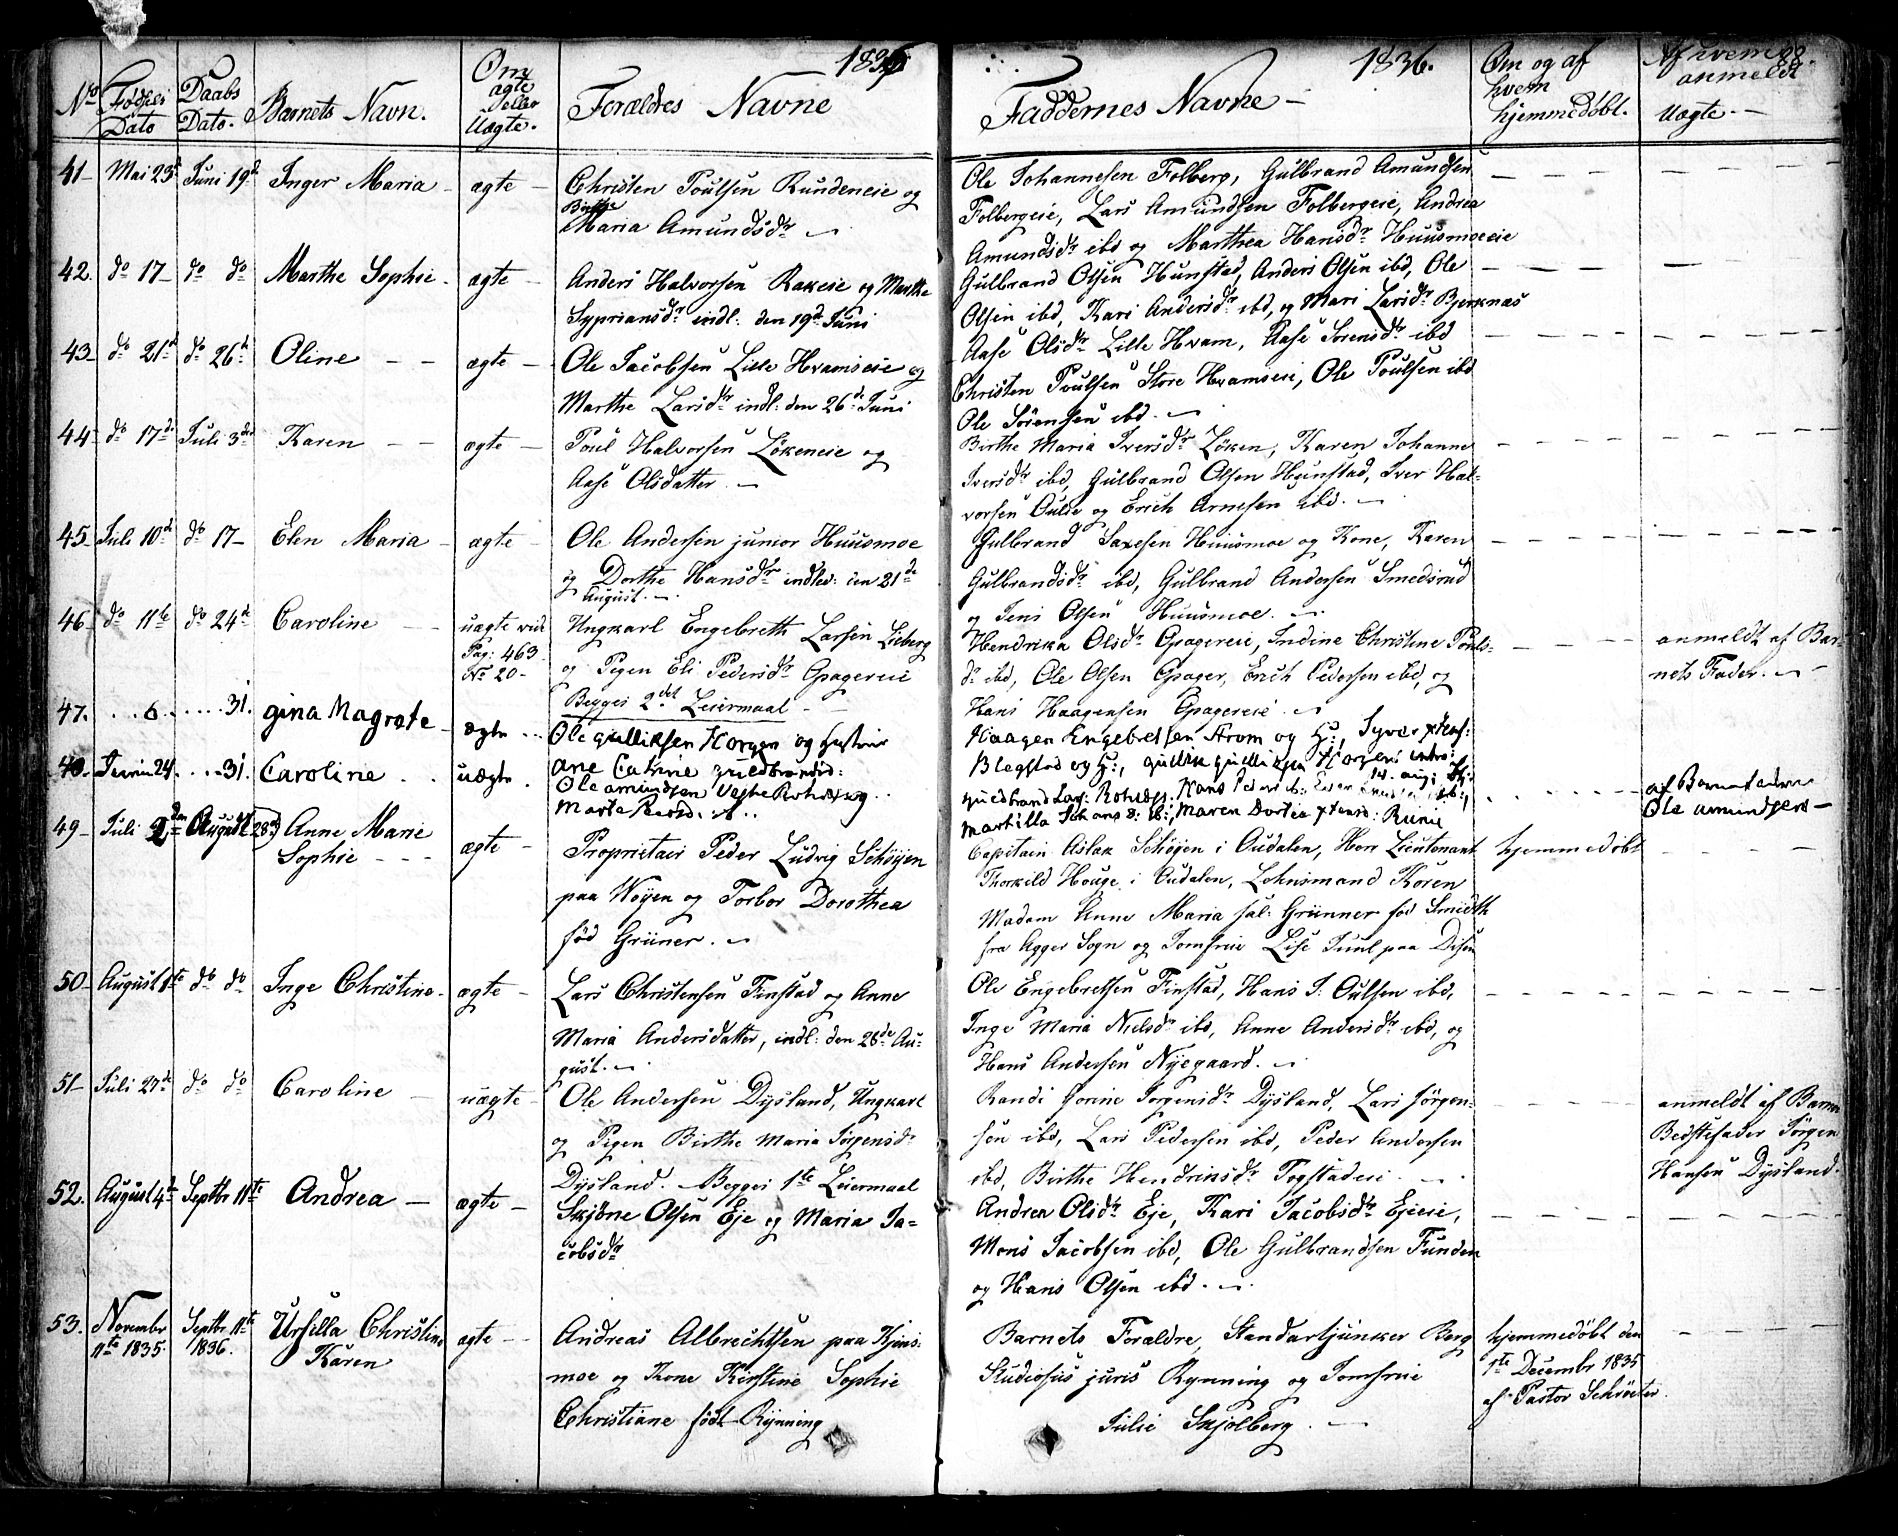 1836
1836.
88.
No
Fødsels Dato
Daabs Dato.
Barnets Navn.
Om ægte eller Uægte.
Forældres Navne
Faddernes Navne
Om og af hvem hjemmedøbt.
Af hvem anmeldt Uægte.
41 Mai 23d Juni 19d Inger Maria ægte
Christen Poulsen Rundeneie og
Birthe
Maria Amundsdr
Ole Johannesen Folberg, Gulbrand Amundsen
Folbergeie, Lars Amundsen Folbergeie, Andrea
Amundsdr ibd og Marthea Hansdr Huusmoeeie
42 do 17 do do Marthe Sophie ægte
Anders Halvorsen Rakeie og Marthe
Sypriansdr indl: den 19d Juni
Gulbrand Olsen Hunstad, Anders Olsen ibd, Ole
Olsen ibd, Kari Andersdr ibd, og Mari Larsdr Bjerknæs
43 do 21d do 26d Oline ægte
Ole Jacobsen Lille Hvamseie og
Marthe Larsdr indl: den 26de Juni
Aase Olsdr Lille Hvam, Aase Sørensdr ibd
Christen Poulsen Store Hvamseie, Ole Poulsen ibd
Ole Sørensen ibd.
44 do 17de Juli 3die Karen ægte
Poul Halvorsen Løkeneie og
Aase Olsdatter
Birthe Maria Iversdr Løken, Karen Johanne
Iversdr ibd, Gulbrand Olsen Hunstad, Iver Hal-
vorsen Oulie og Erich Arnesen ibd.
45 Juli 10d do 17 Elen Maria ægte
Ole Andersen junior Huusmoe
og Dorthe Hansdr indlev: den 21de
August.
Gulbrand Saxesen Huusmoe og Kone, Karen
Gulbrandsdr ibd, Gulbrand Andersen Smedsrud
og Jens Olsen Huusmoe.
46 do 11te do 24d Caroline uægte vid Pag: 463 No 20
Ungkarl Engebreth Larsen Lieberg
og Pigen Eli Pedersdr Opagereie
Begges 2det Leiermaal
Hendrika Olsdr Opagereie, Indine Christine Pouls-
dr ibd, Ole Olsen Opager, Erich Pedersen ibd, og
Hans Haagensen Opagereie
anmeldt af Bar-
nets Fader.
47. 6 31. Gina Magrete ægte
Ole Gulliksen Horgen og Hustrue
Ane Catrine Guldbrandsd:
Haagen Engebretsen Strom og H:, Syver
Blegstad og H:, Gullik Gulliksen Horgen
48. Junii 24 31. Caroline uægte
Ole Amundsen Vestre Roholt og
Marte
Guldbrand Lars: Roholt; Hans Peders ib:
Martilla Johans d: ib:, Maren Dortea
af Barnefaderen
Ole Amundsen
49 Juli 2den August 28d Anne Marie
Sophie ægte
Proprietair Peder Ludvig Schøyen
paa Woyen og Torbor Dorothea
fød Grüner.
Capitain Aslak Schøyen i Oudalen, Herr Lieutenant
Thorkild Houge i Oudalen, Lehnsmand Koren
Madam Anne Maria sal: Grünner fød Smidth
fra Agger Sogn og Jomfrue Lise Juul paa Disen
hjemmedøbt
50 August 1te do do Inge Christine ægte
Lars Christensen Finstad og Anne
Maria Andersdatter, indl: den 28de Au-
gust.
Ole Engebretsen Finstad, Hans J: Oulsen ibd,
Inge Maria Nielsdr ibd, Anne Andersdr ibd, og
Hans Andersen Nyegaard.
51 Juli 27de do do Caroline uægte
Ole Andersen Dysland, Ungkarl
og Pigen Birthe Maria Jørgensdr
Dysland. Begges 1te Leiermaal
Randi Jorine Jorgensdr Dysland, Lars Jørgen-
sen ibd, Lars Pedersen ibd, Peder Andersen
ibd, Birthe Hendriksdr Fogstadeie
anmeldt af Barnets
Bedstefader Jørgen
Hansen Dysland.
52. August 4de Septbr 11te Andrea ægte
Skjöne Olsen Eje og Maria Ja-
cobsdr
Andrea Olsdr Eje, Kari Jacobsdr Ejeeie,
Mons Jacobsen ibd, Ole Gulbrandsen Funden
og Hans Olsen ibd.
53. Novembr 11te 1835. Septbr 11te 1836. Ursilla Christine
Karen ægte
Andreas Albrechtsen paa Hjens-
moe og Kone Kirstine Sophie
Christiane født Rynning
Barnets Forældre, Standartjunker Berg
Studiosus juris Rynning og Jomfrue
Julie Skjolberg.
hjemmedøbt den
1te Decembr 1835
af Pastor Schröeter.